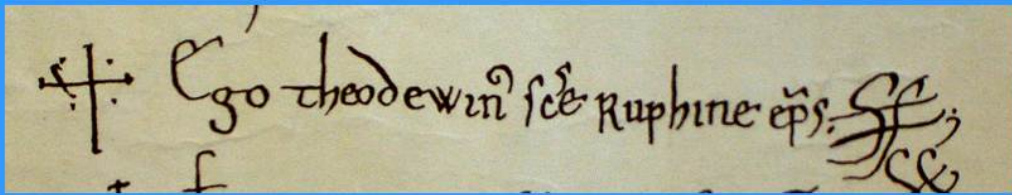 ✠ Ego theodewin̾ sc̅e Ruphine ep̅s. SS;